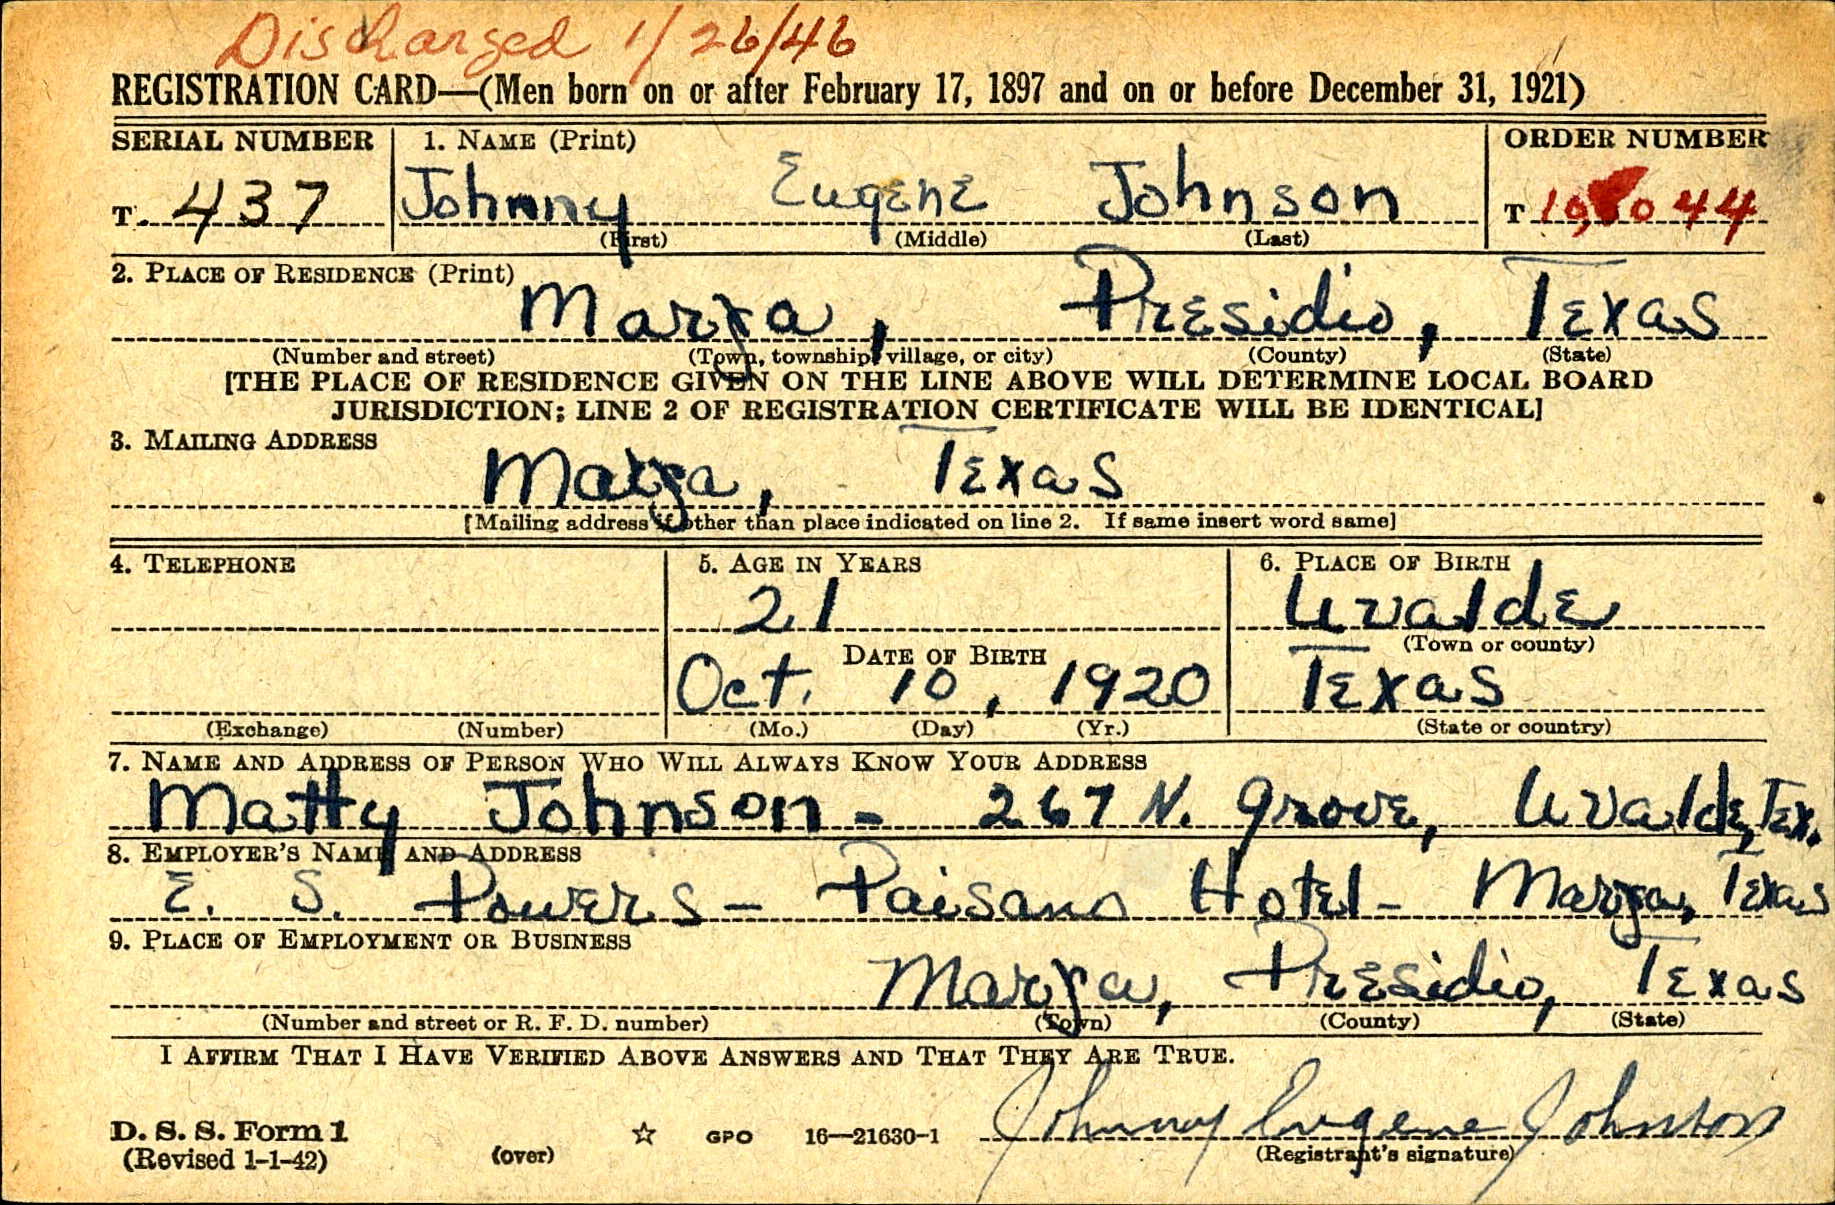 Discharged 1/26/46
REGISTRATION CARD—(Men born on or after February 17, 1897 and on or before December 31, 1921)
SERIAL NUMBER 1. NAME (Print) ORDER NUMBER
T. 437 Johnny Eugene Johnson T
(First) (Middle) (Last)
2. PLACE OF RESIDENCE (Print)
Marfa, Presidio, Texas
(Number and street) (Town, township, village, or city) (County) (State)
[THE PLACE OF RESIDENCE GIVEN ON THE LINE ABOVE WILL DETERMINE LOCAL BOARD
JURISDICTION; LINE 2 OF REGISTRATION CERTIFICATE WILL BE IDENTICAL]
3. MAILING ADDRESS
Marfa, Texas
[Mailing address if other than place indicated on line 2. If same insert word same]
4. TELEPHONE 5. AGE IN YEARS 6. PLACE OF BIRTH
21 Uvalde
DATE OF BIRTH (Town or county)
Oct. 10, 1920 Texas
(Exchange) (Number) (Mo.) (Day) (Yr.) (State or country)
7. NAME AND ADDRESS OF PERSON WHO WILL ALWAYS KNOW YOUR ADDRESS
Matty Johnson - 267 N. Grove, Uvalde, Tex.
8. EMPLOYER'S NAME AND ADDRESS
E. S. Powers - Paisano Hotel - Marfa, Texas
9. PLACE OF EMPLOYMENT OR BUSINESS
Marfa, Presidio, Texas
(Number and street or R. F. D. number) (Town) (County) (State)
I AFFIRM THAT I HAVE VERIFIED ABOVE ANSWERS AND THAT THEY ARE TRUE.
Johnny Eugene Johnson
D. S. S. Form 1
(Revised 1-1-42) (over) ☆ GPO 16—21630-1 (Registrant's signature)